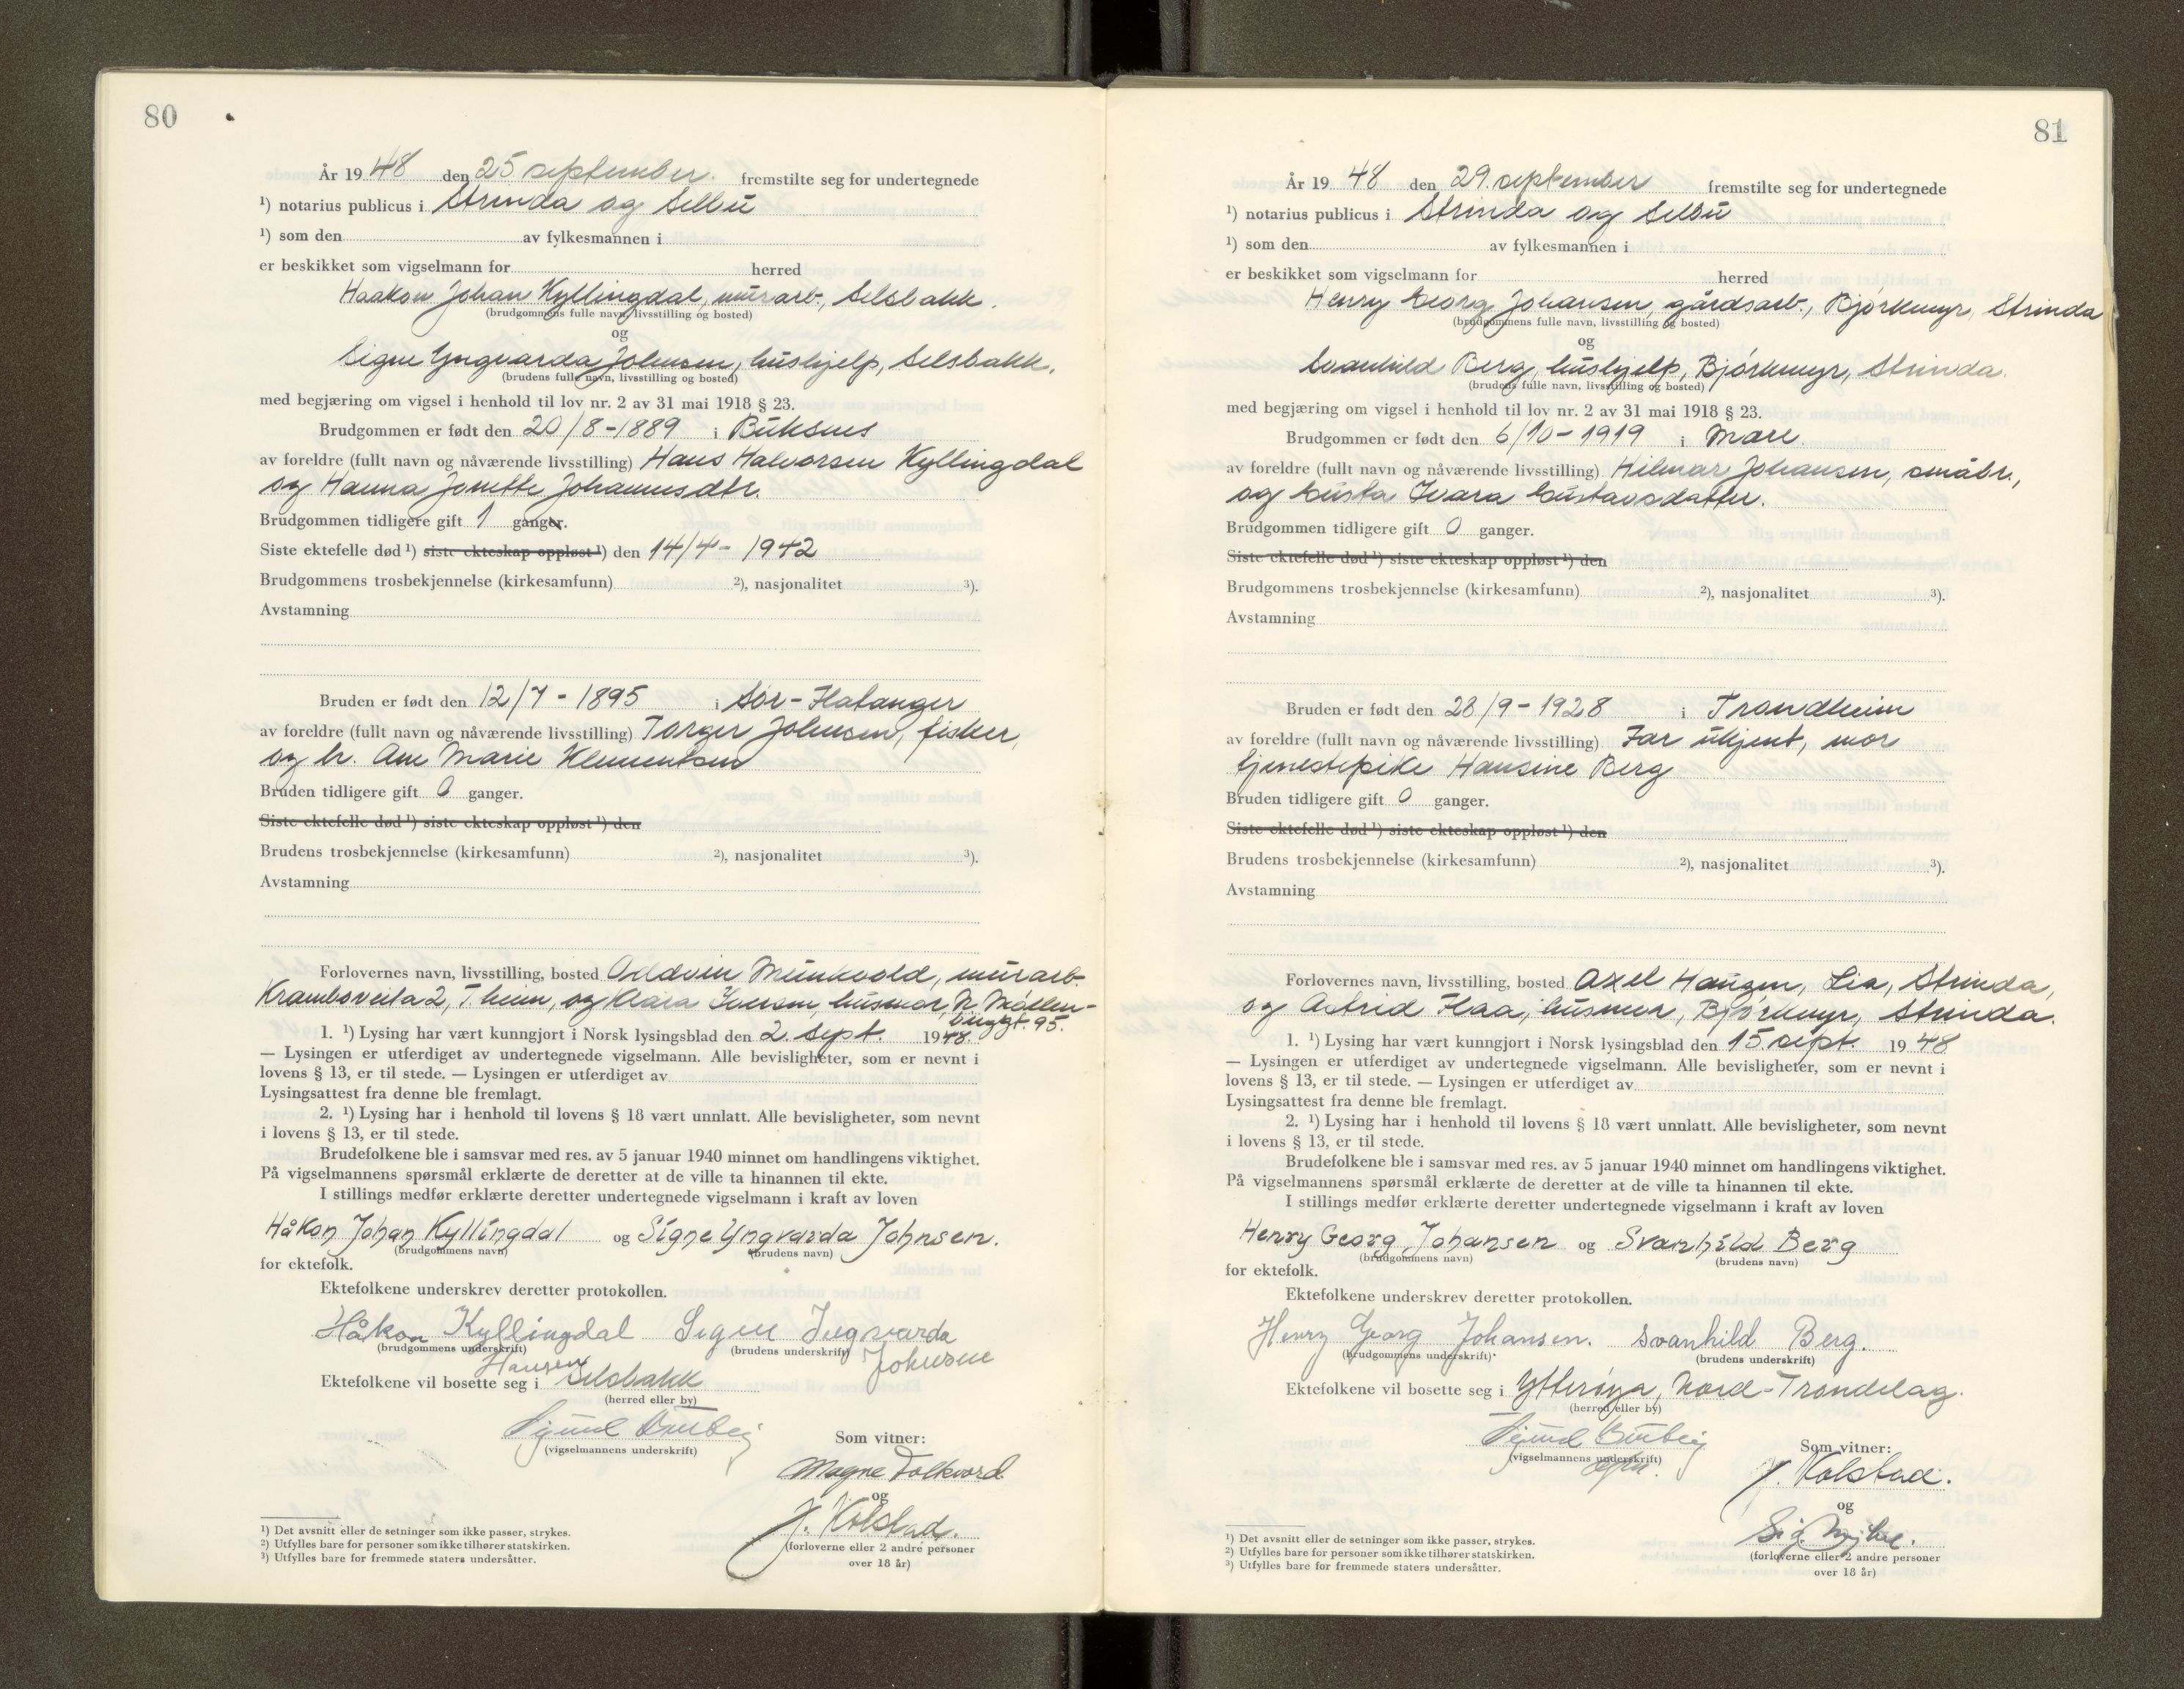 80
År 1948 den 25 september. fremstilte seg for undertegnede
¹) notarius publicus i Strinda og Selbu
¹) som den av fylkesmannen i
er beskikket som vigselmann for herred
Haakon Johan Kyllingdal, murarb., Selsbakk.
(brudgommens fulle navn, livsstilling og bosted)
og
Signe Yngvarda Johnsen, hushjelp, Selsbakk.
(brudens fulle navn, livsstilling og bosted)
med begjæring om vigsel i henhold til lov nr. 2 av 31 mai 1918 § 23.
Brudgommen er født den 20/8-1889 i Buksnes
av foreldre (fullt navn og nåværende livsstilling) Hans Halvorsen Kyllingdal
og Hanna Jonette Johannesdtr.
Brudgommen tidligere gift 1 ganger.
Siste ektefelle død ¹) siste ekteskap oppløst ¹) den 14/4- 1942
Brudgommens trosbekjennelse (kirkesamfunn) ²), nasjonalitet ³).
Avstamning
Bruden er født den 12/7-1895 i Sør-Flatanger
av foreldre (fullt navn og nåværende livsstilling) Torger Johnsen, fisker,
og h. Ane Marie Klementsen
Bruden tidligere gift 0 ganger.
Siste ektefelle død ¹) siste ekteskap oppløst ¹) den
Brudens trosbekjennelse (kirkesamfunn) ²), nasjonalitet ³).
Avstamning
Forlovernes navn, livsstilling, bosted Oddvin Munkvold, murarb.
Kramboveita 2, T.heim, og Klara Iversen, husmor, N. Møllen-
bergt. 95.
1. ¹) Lysing har vært kunngjort i Norsk lysingsblad den 2. sept. 1948.
— Lysingen er utferdiget av undertegnede vigselmann. Alle bevisligheter, som er nevnt i
lovens § 13, er til stede. — Lysingen er utferdiget av
Lysingsattest fra denne ble fremlagt.
2. ¹) Lysing har i henhold til lovens § 18 vært unnlatt. Alle bevisligheter, som nevnt
i lovens § 13, er til stede.
Brudefolkene ble i samsvar med res. av 5 januar 1940 minnet om handlingens viktighet.
På vigselmannens spørsmål erklærte de deretter at de ville ta hinannen til ekte.
I stillings medfør erklærte deretter undertegnede vigselmann i kraft av loven
Håkon Johan Kyllingdal og Signe Yngvarda Johnsen.
(brudgommens navn) (brudens navn)
for ektefolk.
Ektefolkene underskrev deretter protokollen.
Håkon Kyllingdal Signe Ingvarda
(brudgommens underskrift) (brudens underskrift) Johnsen
Hansen
Ektefolkene vil bosette seg i Selsbakk
(herred eller by)
(vigselmannens underskrift)
Som vitner:
Magne Folkvord
og
J. Kolstad.
(forloverne eller 2 andre personer
over 18 år)
¹) Det avsnitt eller de setninger som ikke passer, strykes.
²) Utfylles bare for personer som ikke tilhører statskirken.
³) Utfylles bare for fremmede staters undersåtter.
81
År 1948 den 29. september fremstilte seg for undertegnede
¹) notarius publicus i Strinda og Selbu
¹) som den av fylkesmannen i
er beskikket som vigselmann for herred
Henry Georg Johansen, gårdsarb., Bjørkmyr, Strinda
(brudgommens fulle navn, livsstilling og bosted)
og
Svanhild Berg, hushjelp, Bjørkmyr, Strinda.
(brudens fulle navn, livsstilling og bosted)
med begjæring om vigsel i henhold til lov nr. 2 av 31 mai 1918 § 23.
Brudgommen er født den 6/10-1919 i Mare.
av foreldre (fullt navn og nåværende livsstilling) Hilmar Johansen, småbr.,
og Gusta Ivara Gustavsdatter.
Brudgommen tidligere gift 0 ganger.
Siste ektefelle død ¹) siste ekteskap oppløst ¹) den
Brudgommens trosbekjennelse (kirkesamfunn) ²), nasjonalitet ³).
Avstamning
Bruden er født den 28/9-1928 i Trondheim
av foreldre (fullt navn og nåværende livsstilling) Far ukjent, mor
tjenestepike Hansine Berg
Bruden tidligere gift 0 ganger.
Siste ektefelle død ¹) siste ekteskap oppløst ¹) den
Brudens trosbekjennelse (kirkesamfunn) ²), nasjonalitet ³).
Avstamning
Forlovernes navn, livsstilling, bosted Axel Haugen, Lia, Strinda,
og Astrid Flaa, husmor, Bjørkmyr, Strinda.
1. ¹) Lysing har vært kunngjort i Norsk lysingsblad den 15 sept. 1948
— Lysingen er utferdiget av undertegnede vigselmann. Alle bevisligheter, som er nevnt i
lovens § 13, er til stede. — Lysingen er utferdiget av
Lysingsattest fra denne ble fremlagt.
2. ¹) Lysing har i henhold til lovens § 18 vært unnlatt. Alle bevisligheter, som nevnt
i lovens § 13, er til stede.
Brudefolkene ble i samsvar med res. av 5 januar 1940 minnet om handlingens viktighet.
På vigselmannens spørsmål erklærte de deretter at de ville ta hinannen til ekte.
I stillings medfør erklærte deretter undertegnede vigselmann i kraft av loven
Henry Georg Johansen og Svanhild Berg
(brudgommens navn) (brudens navn)
for ektefolk.
Ektefolkene underskrev deretter protokollen.
Henry Georg Johansen. Svanhild Berg.
(brudgommens underskrift) (brudens underskrift)
Ektefolkene vil bosette seg i Ytterøya, Nord-Trøndelag.
(herred eller by)
(vigselmannens underskrift)
Som vitner:
J. Kolstad.
og
(forloverne eller 2 andre personer
over 18 år)
¹) Det avsnitt eller de setninger som ikke passer, strykes.
²) Utfylles bare for personer som ikke tilhører statskirken.
³) Utfylles bare for fremmede staters undersåtter.